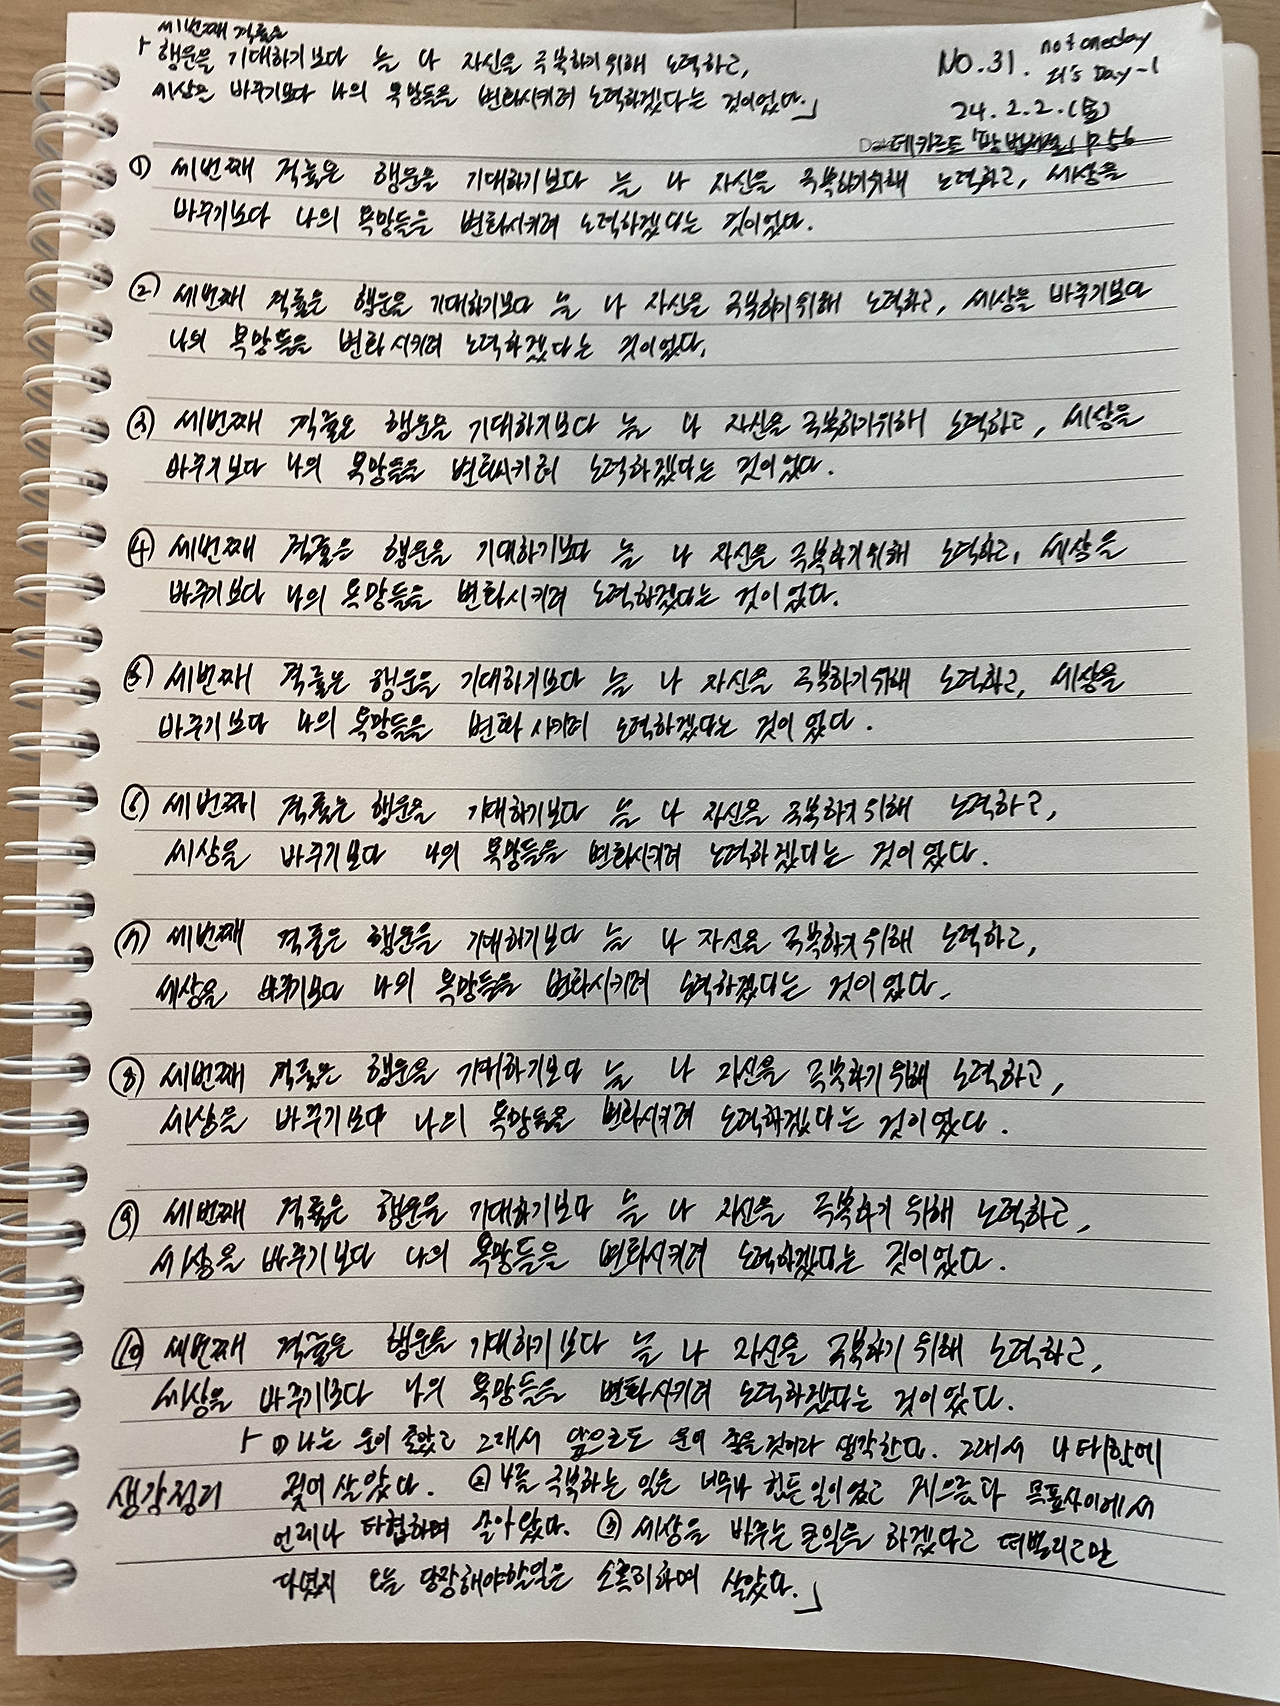 세번째 격률은
「행운을 기대하기보다 늘 나 자신을 극복하기위해 노력하고,
세상을 바꾸기보다 나의 욕망들을 변화시키려 노력하겠다는 것이었다.」
NO.31. not oneday
It's Day-1
24.2.2.(금)
데카르트 「방법서설」 P.56
① 세번째 격률은 행운을 기대하기보다 늘 나 자신을 극복하기위해 노력하고, 세상을
바꾸기보다 나의 욕망들을 변화시키려 노력하겠다는 것이었다.
② 세번째 격률은 행운을 기대하기보다 늘 나 자신을 극복하기위해 노력하고, 세상을 바꾸기보다
나의 욕망들을 변화시키려 노력하겠다는 것이었다.
③ 세번째 격률은 행운을 기대하기보다 늘 나 자신을 극복하기위해 노력하고, 세상을
바꾸기보다 나의 욕망들을 변화시키려 노력하겠다는 것이었다.
④ 세번째 격률은 행운을 기대하기보다 늘 나 자신을 극복하기위해 노력하고, 세상을
바꾸기보다 나의 욕망들을 변화시키려 노력하겠다는 것이었다.
⑤ 세번째 격률은 행운을 기대하기보다 늘 나 자신을 극복하기위해 노력하고, 세상을
바꾸기보다 나의 욕망들을 변화시키려 노력하겠다는 것이었다.
⑥ 세번째 격률은 행운을 기대하기보다 늘 나 자신을 극복하기위해 노력하고,
세상을 바꾸기보다 나의 욕망들을 변화시키려 노력하겠다는 것이었다.
⑦ 세번째 격률은 행운을 기대하기보다 늘 나 자신을 극복하기위해 노력하고,
세상을 바꾸기보다 나의 욕망들을 변화시키려 노력하겠다는 것이었다.
⑧ 세번째 격률은 행운을 기대하기보다 늘 나 자신을 극복하기위해 노력하고,
세상을 바꾸기보다 나의 욕망들을 변화시키려 노력하겠다는 것이었다.
⑨ 세번째 격률은 행운을 기대하기보다 늘 나 자신을 극복하기 위해 노력하고,
세상을 바꾸기보다 나의 욕망들을 변화시키려 노력하겠다는 것이었다.
⑩ 세번째 격률은 행운을 기대하기보다 늘 나 자신을 극복하기 위해 노력하고,
세상을 바꾸기보다 나의 욕망들을 변화시키려 노력하겠다는 것이었다.
「① 나는 운이 좋았고 그래서 앞으로도 운이 좋을것이라 생각한다. 그래서 나태함에
생각정리 젖어 살았다. ② 나를 극복하는 일은 너무나 힘든 일이었고 게으름과 목표사이에서
언제나 타협하며 살아왔다. ③ 세상을 바꾸는 큰일을 하겠다고 떠벌리고만
다녔지 오늘 당장해야할일은 소홀히하며 살았다.」